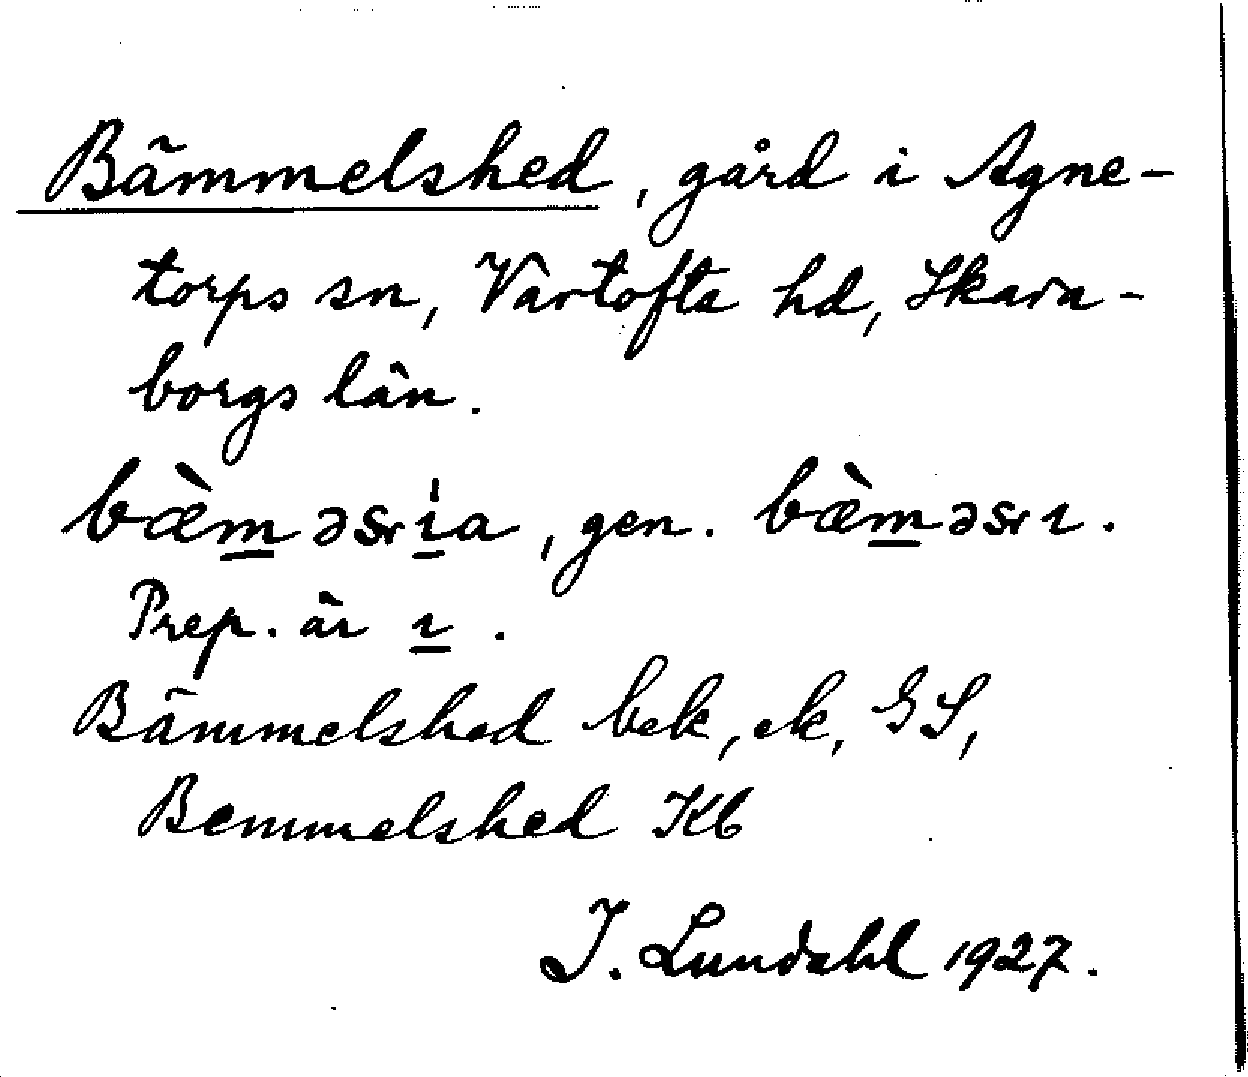 Bämmelshed, gård i Agne-
torps sn, Vartofta hd, Skara-
borgs län.
bæ̀m̲əsrı̲́a, gen. bæ̀m̲əsrı.
Prep. är ı̲.
Bämmelshed bek, ek, GS,
Bemmelshed Kb
I. Lundahl 1927.